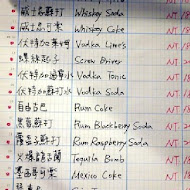 威士忌蘇打 Whiskey Soda NT
威士忌可樂 Whiskey Coke NT 18
伏特加萊姆 Vodka Lime's NT
螺絲起子 Screw Driver NT
伏特加通寧水 Vodka Tonic NT
伏特加蘇打水 Vodka Soda NT
自由古巴 Rum Coke NT
黑莓蘇打 Rum Blackberry Soda NT
覆盆子蘇打 Rum Raspberry Soda NT
火爆龍舌蘭 Tequila Bomb NT
墨西哥可樂 Mexico Coke NT